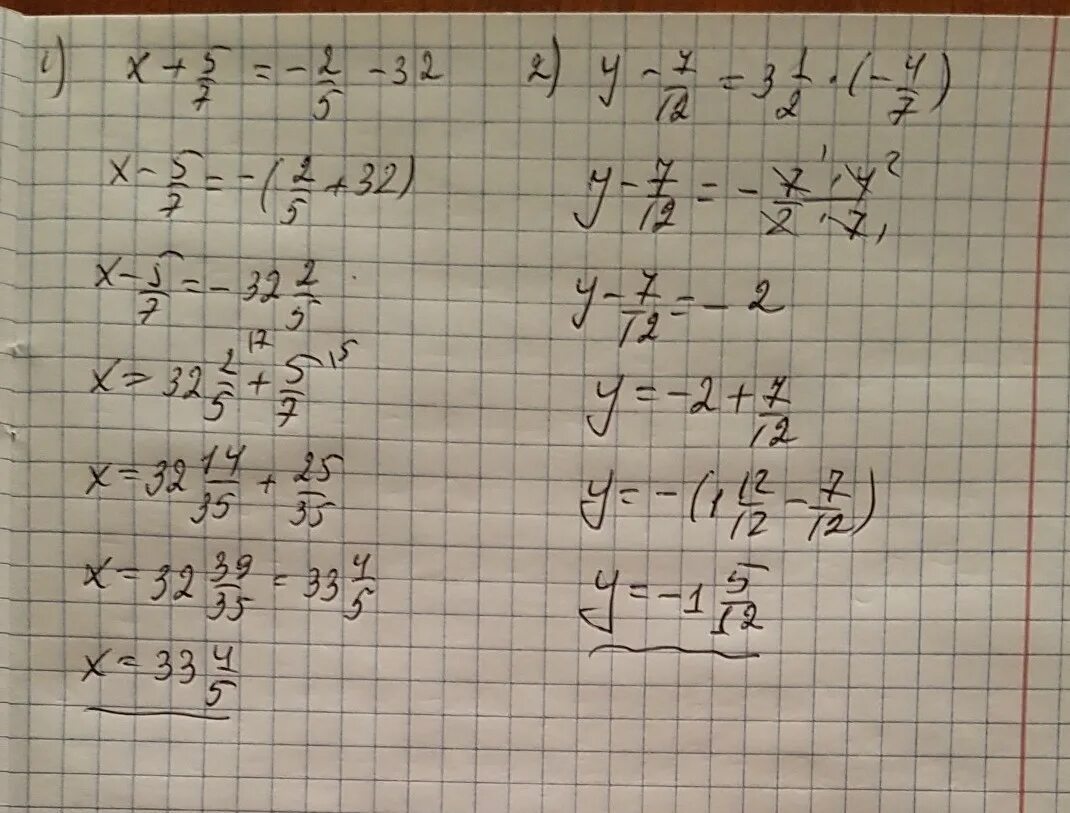 1) x + 5/7 = - 2/5 - 32
x - 5/7 = - (2/5 + 32)
x - 5/7 = - 32 2/5
x = 32 2/5 ·7 + 5/7 ·5
x = 32 14/35 + 25/35
x = 32 39/35 = 33 4/5
x = 33 4/5
2) y - 7/12 = 3 1/2 · (- 4/7)
y - 7/12 = - 7 1 · 4 2 / 2 · 7 1
y - 7/12 = - 2
y = -2 + 7/12
y = - (1 12/12 - 7/12)
y = -1 5/12